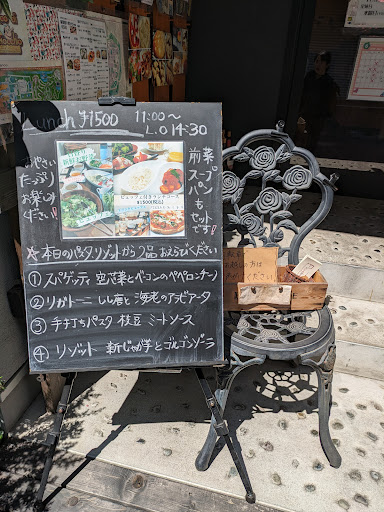 Lunch ¥1500 11:00〜
L.O 14:30
おやさい
たっぷり
お楽しみ
ください!
ビュッフェ付きランチコース
¥1500(税込)
前菜
スープ
パン
も
セット
です!
☆本日のパスタ、リゾットから1品おえらびください
① スパゲッティ 空芯菜とベーコンのペペロンチーノ
② リガトーニ しし唐と海老のアラビアータ
③ 手打ちパスタ 枝豆ミートソース
④ リゾット 新じゃが芋とゴルゴンゾーラ